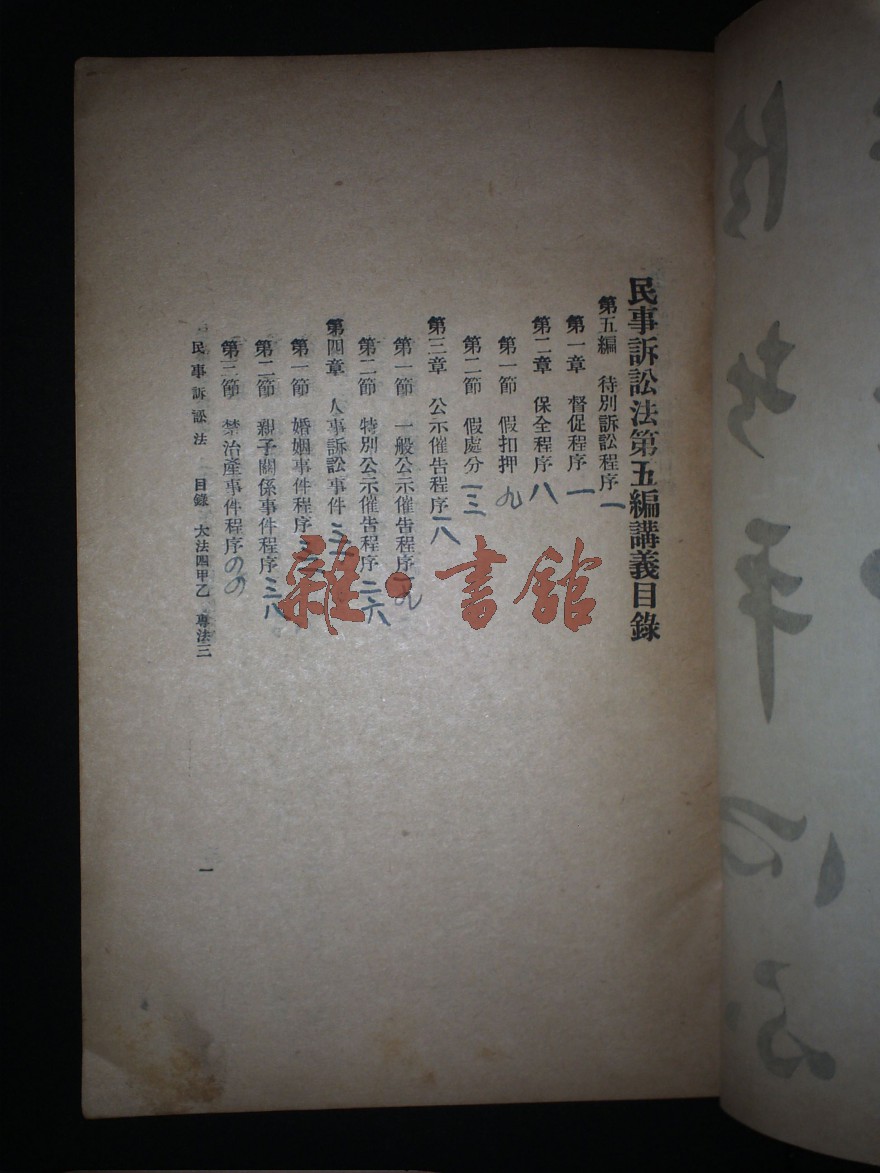 民事訴訟法第五編講義目錄
第五編　待別訴訟程序　一
第一章　督促程序　一
第二章　保全程序　八
第一節　假扣押　九
第二節　假處分　一三
第三章　公示催告程序　一八
第一節　一般公示催告程序
第二節　特別公示催告程序　二六
第四章　人事訴訟事件
第一節　婚姻事件程序
第二節　親子關係事件程序　三八
第三節　禁治產事件程序
民事訴訟法　目錄　大法四甲乙　專法三
一
雜·書館